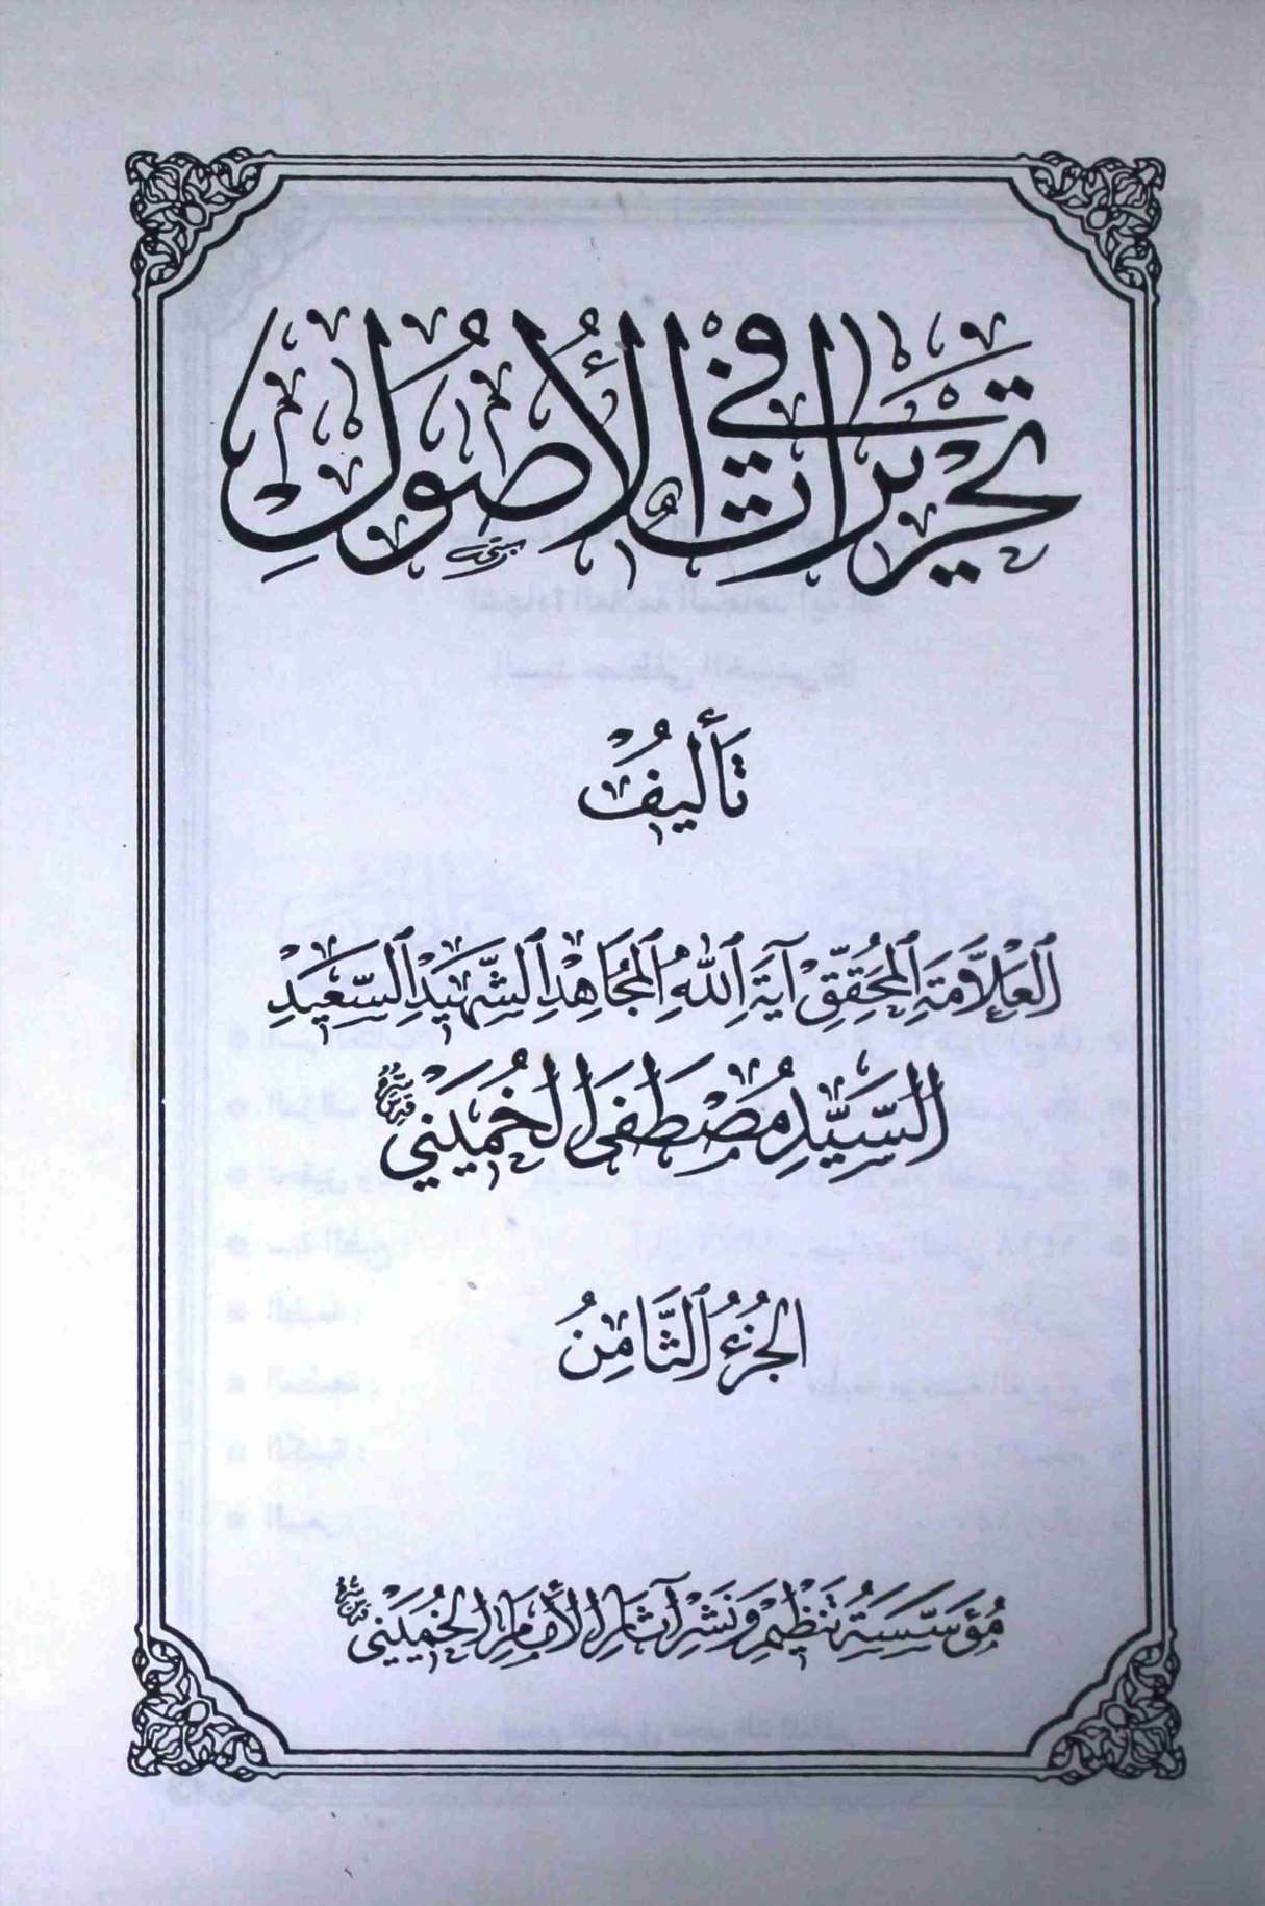 تحريرات في الأصول
تأليف
العلامة المحقق آية الله المجاهد الشهيد السعيد
السيد مصطفى الخميني قدس سره
الجزء الثامن
مؤسسة تنظيم ونشر آثار الإمام الخميني قدس سره